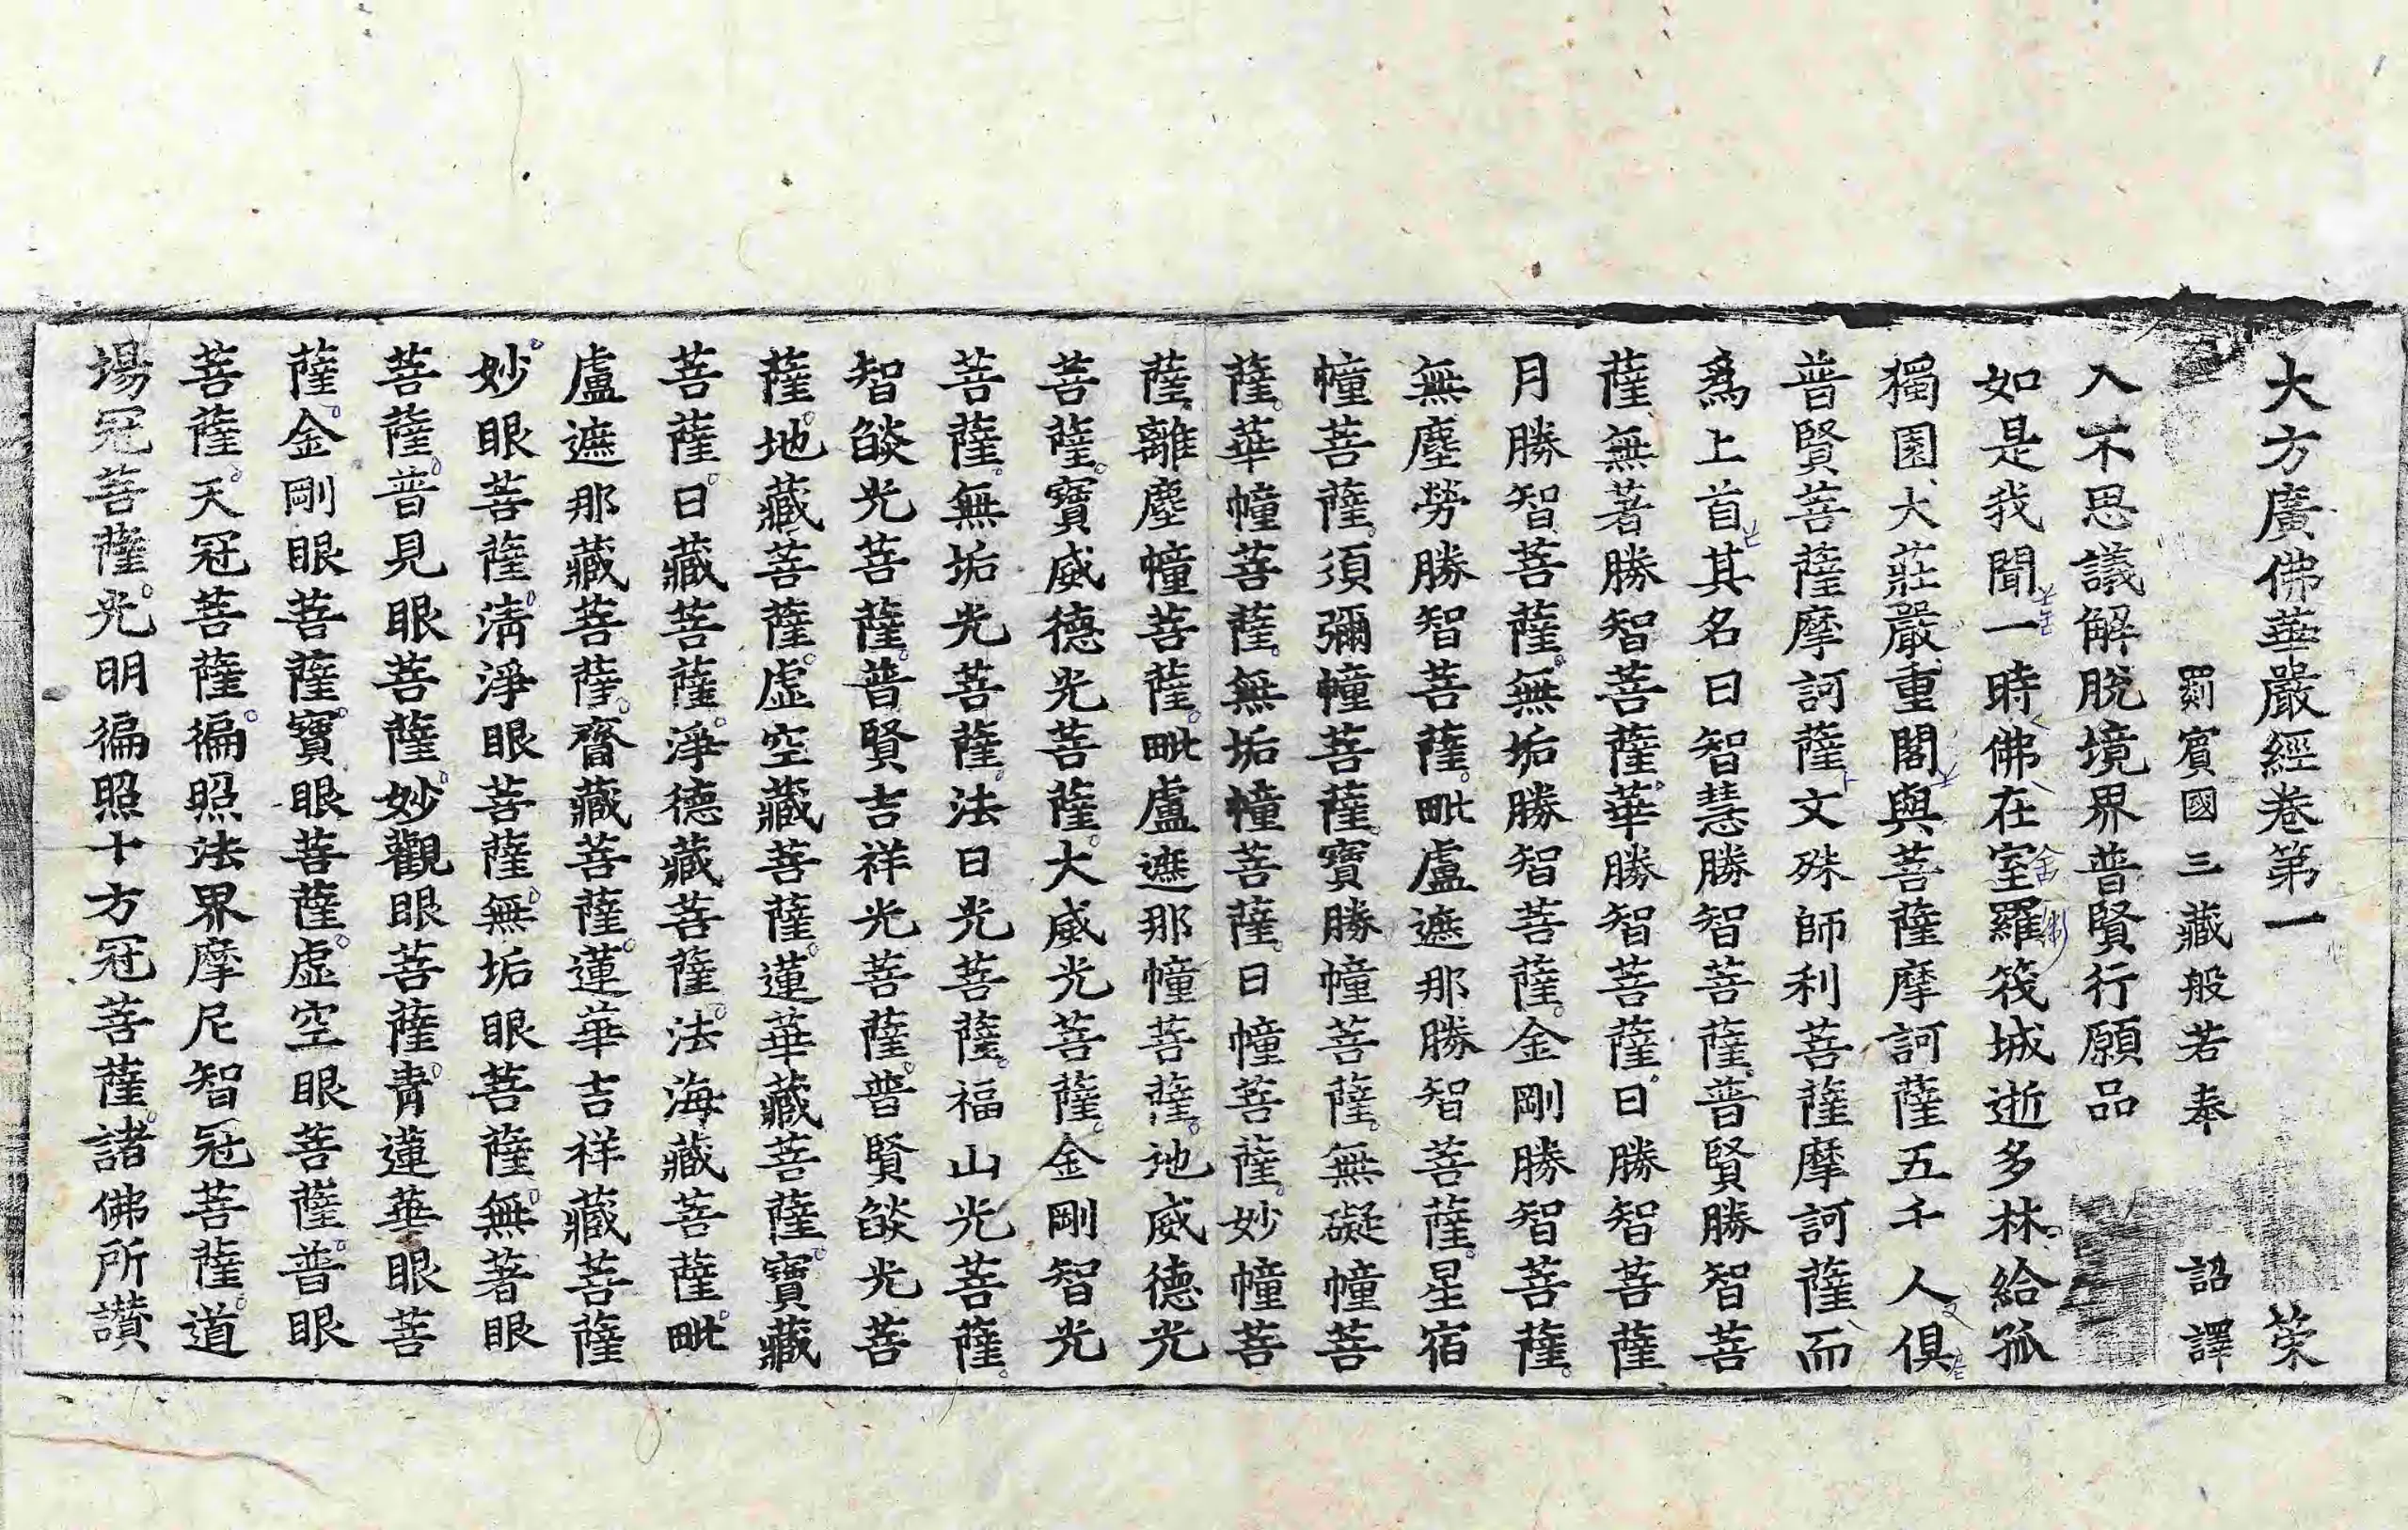 大方廣佛華嚴經卷第一 榮
罽賓國三藏般若奉 詔譯
入不思議解脫境界普賢行願品
如是我聞一時佛在室羅筏城逝多林給孤
獨園大莊嚴重閣與菩薩摩訶薩五千人俱
普賢菩薩摩訶薩文殊師利菩薩摩訶薩而
爲上首其名曰智慧勝智菩薩普賢勝智菩
薩無著勝智菩薩華勝智菩薩日勝智菩薩
月勝智菩薩無垢勝智菩薩金剛勝智菩薩
無塵勞勝智菩薩毗盧遮那勝智菩薩星宿
幢菩薩須彌幢菩薩寶勝幢菩薩無礙幢菩
薩華幢菩薩無垢幢菩薩日幢菩薩妙幢菩
薩離塵幢菩薩毗盧遮那幢菩薩地威德光
菩薩寶威德光菩薩大威光菩薩金剛智光
菩薩無垢光菩薩法日光菩薩福山光菩薩
智燄光菩薩普賢吉祥光菩薩普賢燄光菩
薩地藏菩薩虛空藏菩薩蓮華藏菩薩寶藏
菩薩日藏菩薩淨德藏菩薩法海藏菩薩毗
盧遮那藏菩薩齎藏菩薩蓮華吉祥藏菩薩
妙眼菩薩清淨眼菩薩無垢眼菩薩無著眼
菩薩普見眼菩薩妙觀眼菩薩青蓮華眼菩
薩金剛眼菩薩寶眼菩薩虛空眼菩薩普眼
菩薩天冠菩薩徧照法界摩尼智冠菩薩道
場冠菩薩光明徧照十方冠菩薩諸佛所讚